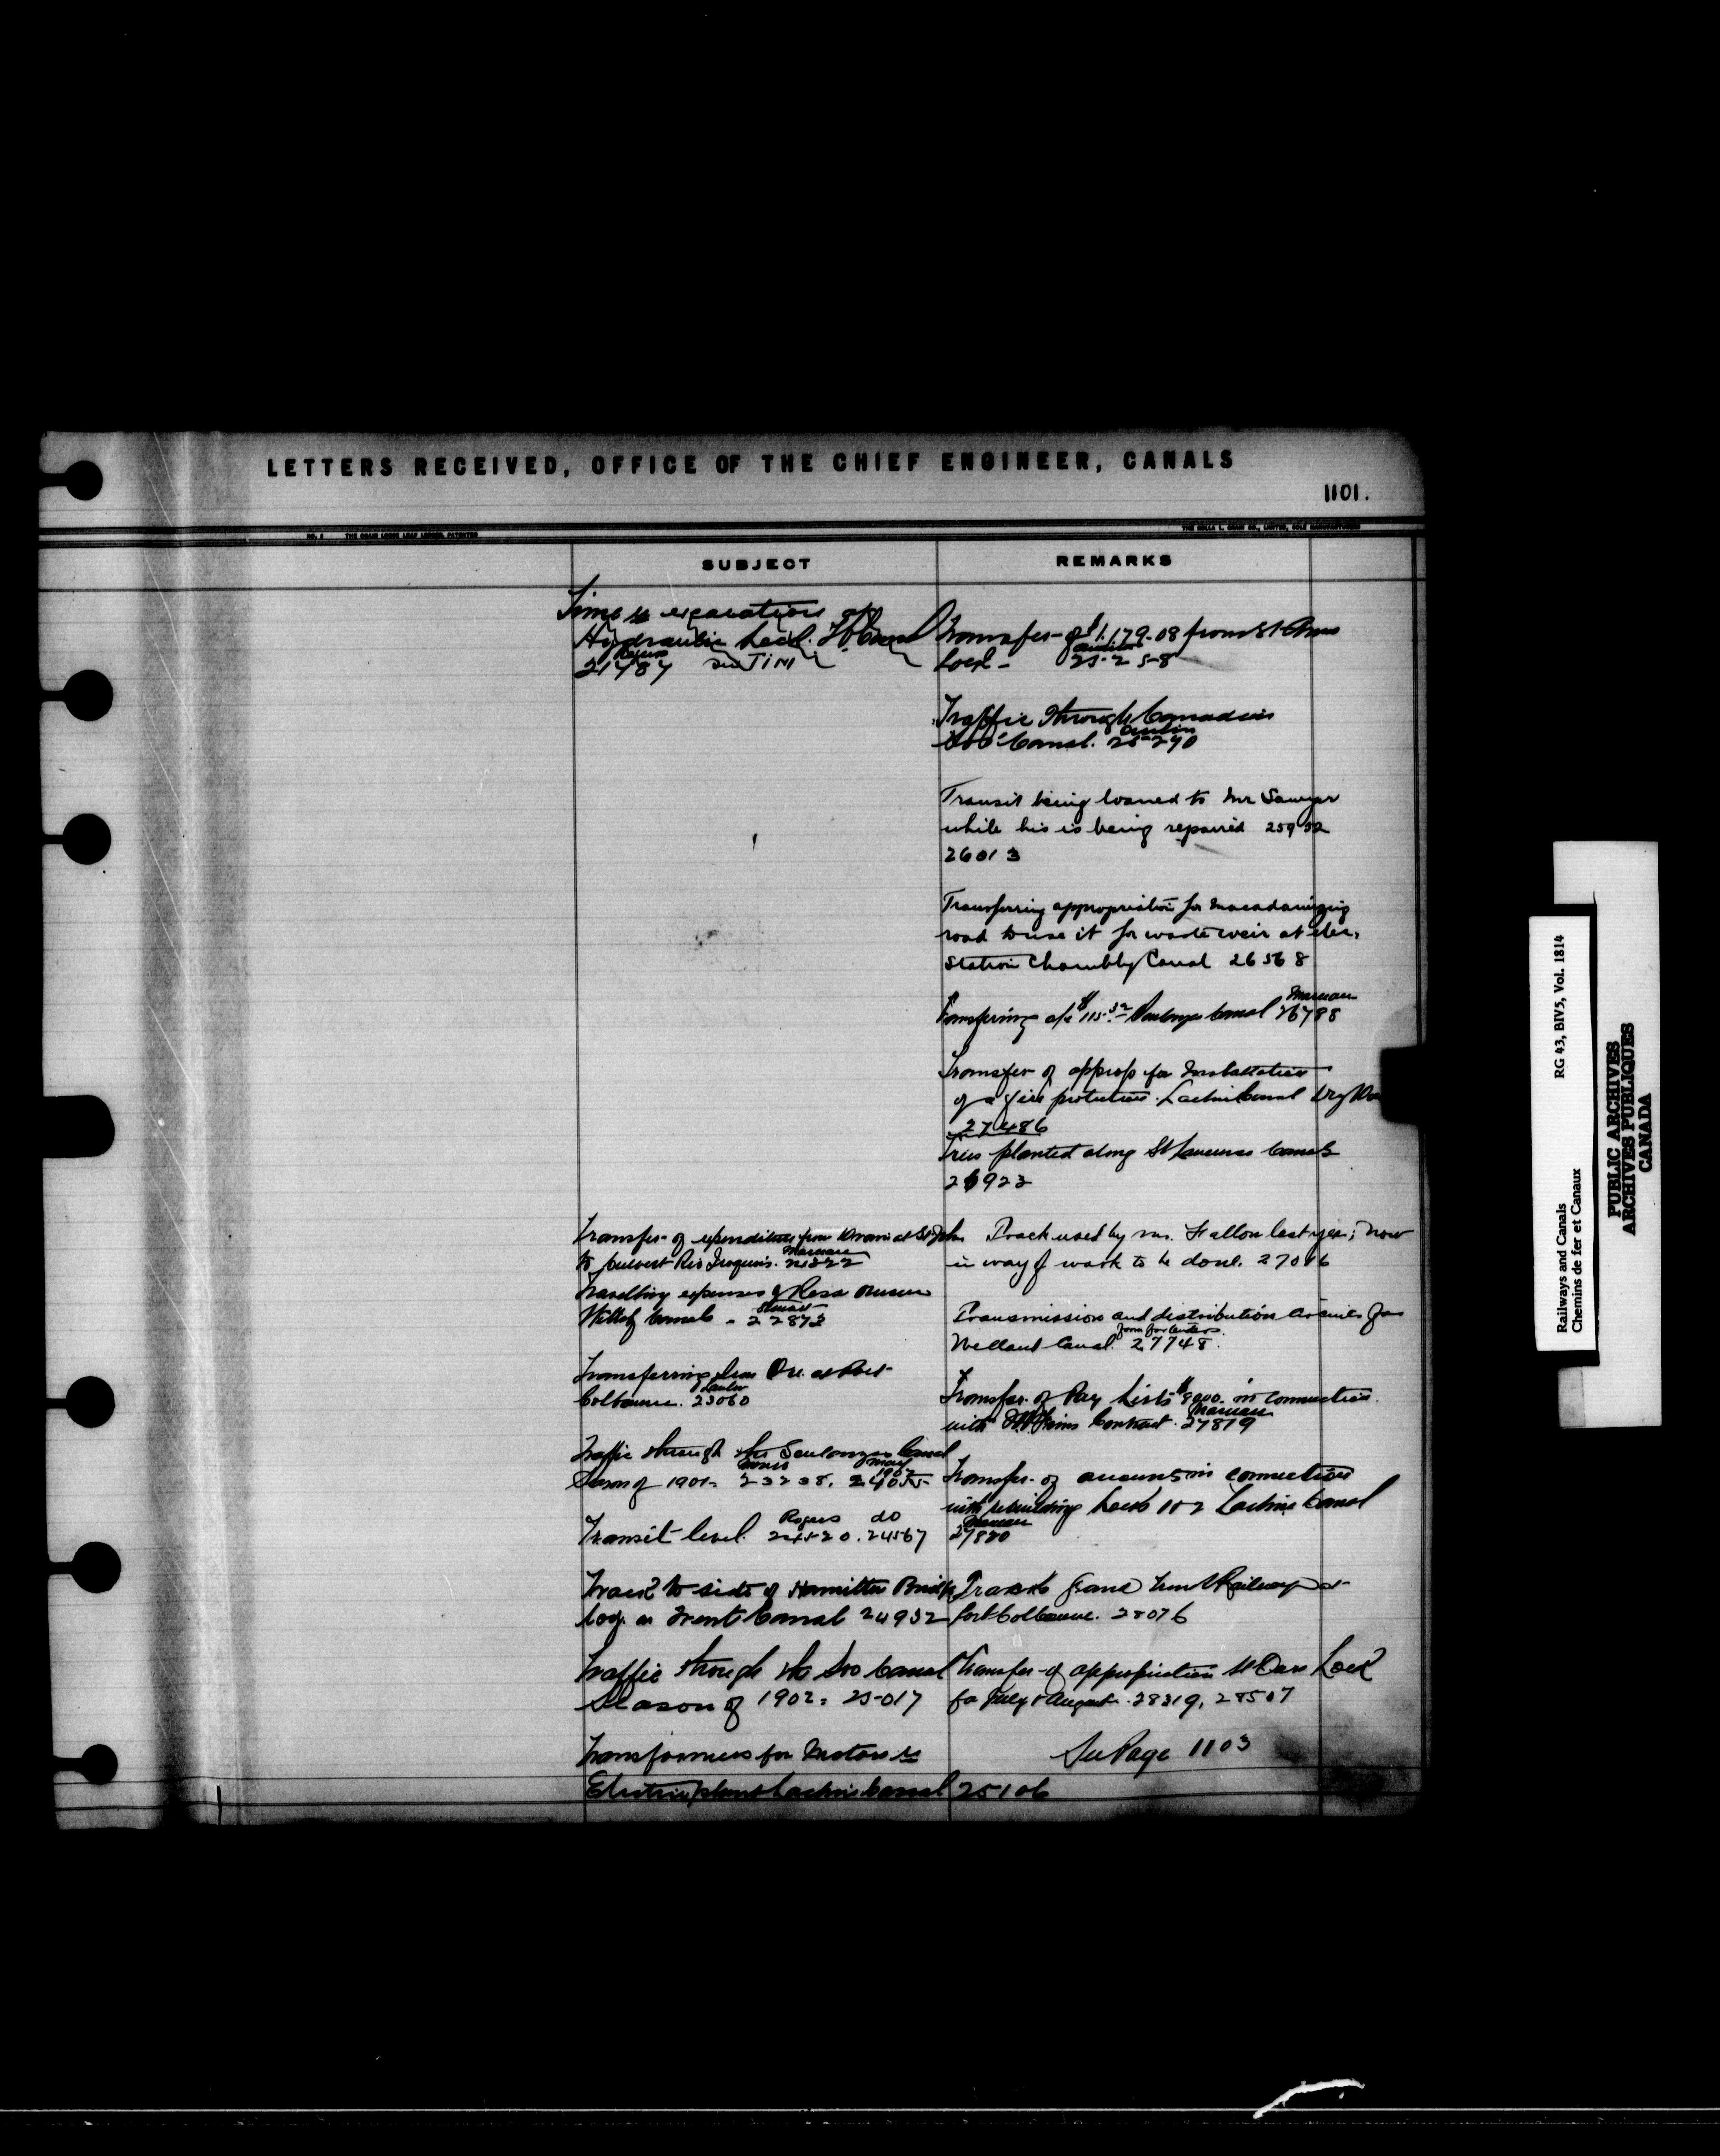 LETTERS RECEIVED, OFFICE OF THE CHIEF ENGINEER, CANALS
1101.
SUBJECT
REMARKS
Time re excavations at
Hydraulic Lock.
Rogers
21787 see TIM
Transfer of $1.179.08 from St Anns
Lock - 25258
Traffic through Canadian
"Soo" Canal. 25290
Transit being loaned to Mr Sawyer
while his is being repaired 25952
26013
Transferring appropriation for macadamizing
road to use it for waste weir at elec.
Station Chambly Canal 26568
Marceau
Transferring a/c $115.32 Soulanges Canal 26788
Transfer of approp for Installation
of a fire protection. Lachine Canal Dry
27486
Trees planted along St Lawrence Canals
26923
Transfer of expenditure from Drain at St John
Marceau
to Culvert Riv Iroquois.
Travelling expenses of
Canals - 22873
Transferring Iron Ore at Port
Colborne. 23060
Traffic through the Soulanges Canal
Season of 1901. 23238.
Rogers do
Transit level. 24520. 24567
Track to side of Hamilton Bridge
Coy. on Trent Canal 24932
Traffic through the Soo Canal
Season of 1902. 25017
Transformers for Motors re
Electric plant Lachine Canal 25106
Track used by Mr. Fallon last year; now
in way of work to be done. 27016
Transmission and distribution circuits for
form for tenders.
Welland Canal. 27748.
Transfer of Pay Lists $8000. in connection
Marceau
with Contract. 27819
Transfer of amounts in connection
with rebuilding Lock 1 & 2 Lachine Canal
Marceau
27820
Track Grand Trunk Railway at
Port Colborne. 28076
Transfer of appropriation St Ours Lock
for July & August. 28319, 28507
See Page 1103
RG 43, BIV5, Vol. 1814
Railways and Canals
Chemins de fer et Canaux
PUBLIC ARCHIVES
ARCHIVES PUBLIQUES
CANADA